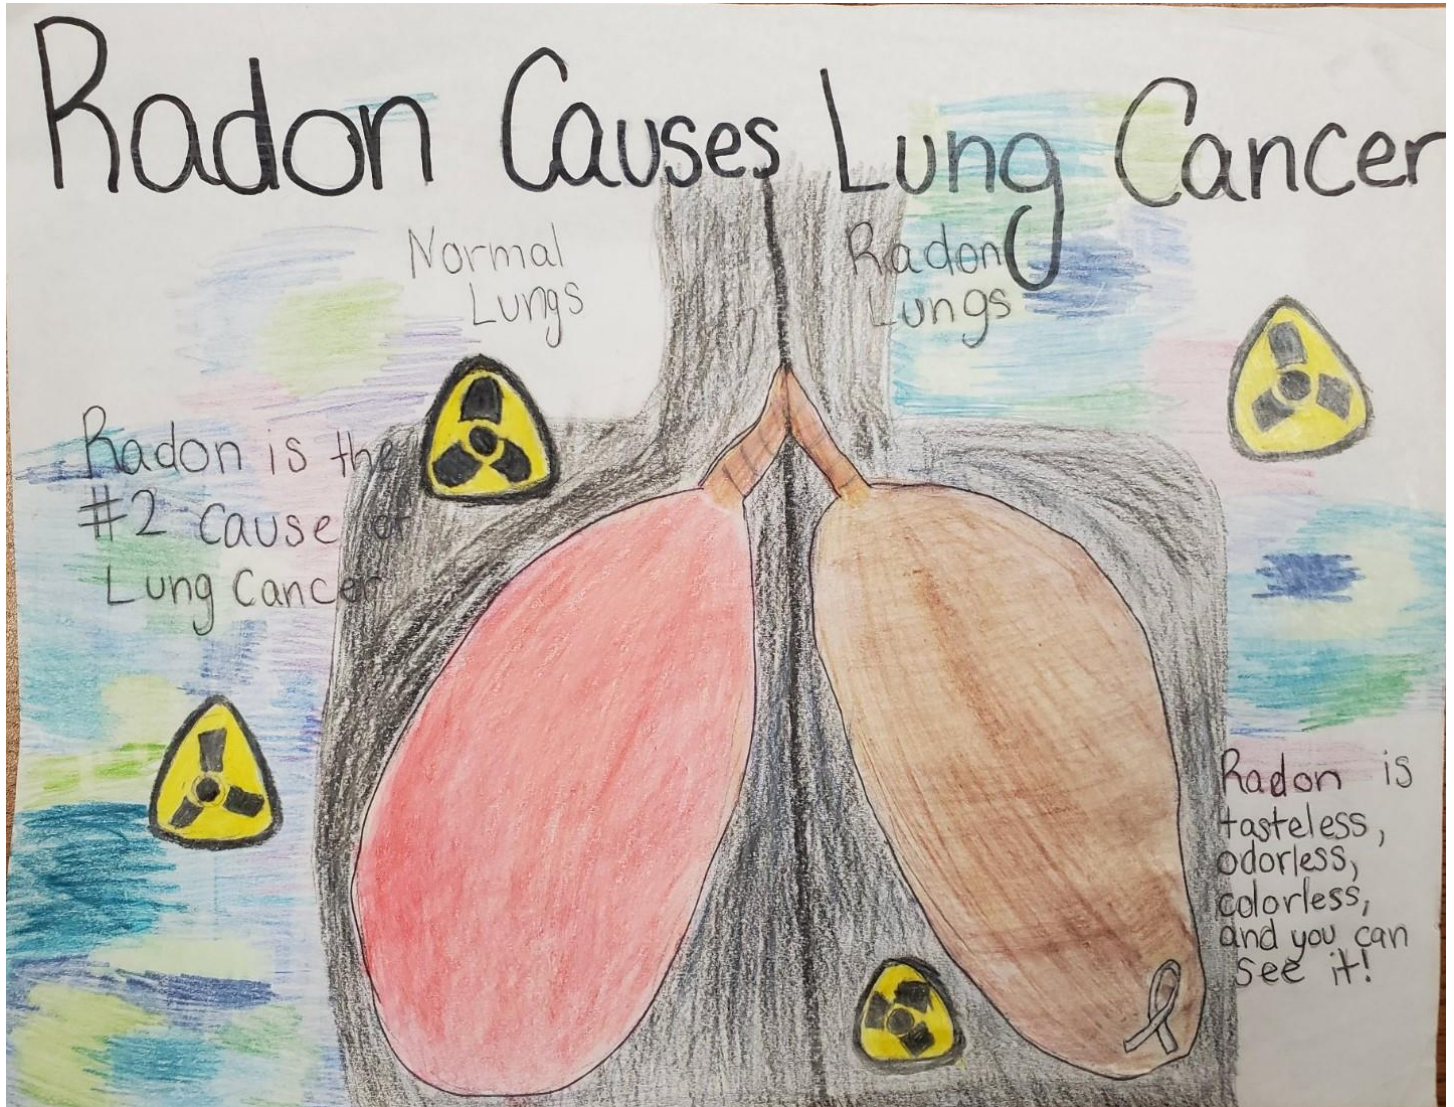 Radon Causes Lung Cancer
Normal
Lungs
Radon
Lungs
Radon is the
#2 cause of
Lung Cancer
Radon is
tasteless,
odorless,
colorless,
and you can
see it!